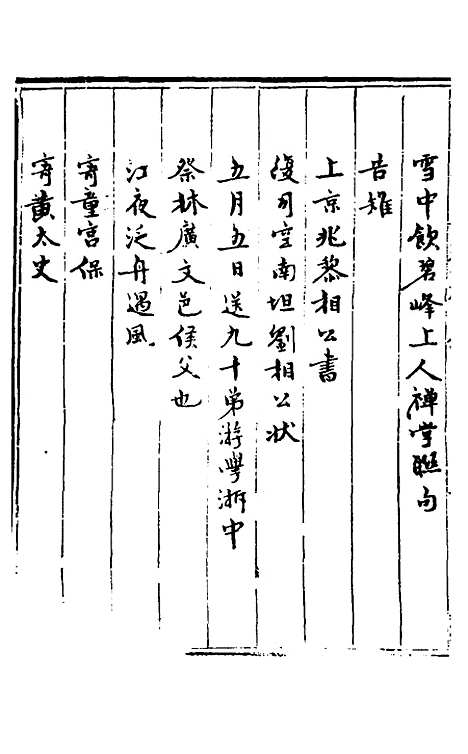 雪中飲碧峰上人禪堂聯句
告雉
上京兆黎相公書
復司空南坦劉相公狀
五月五日送九十弟游學浙中
祭林廣文邑侯父也
江夜泛舟遇風
寄童宮保
寄黃太史